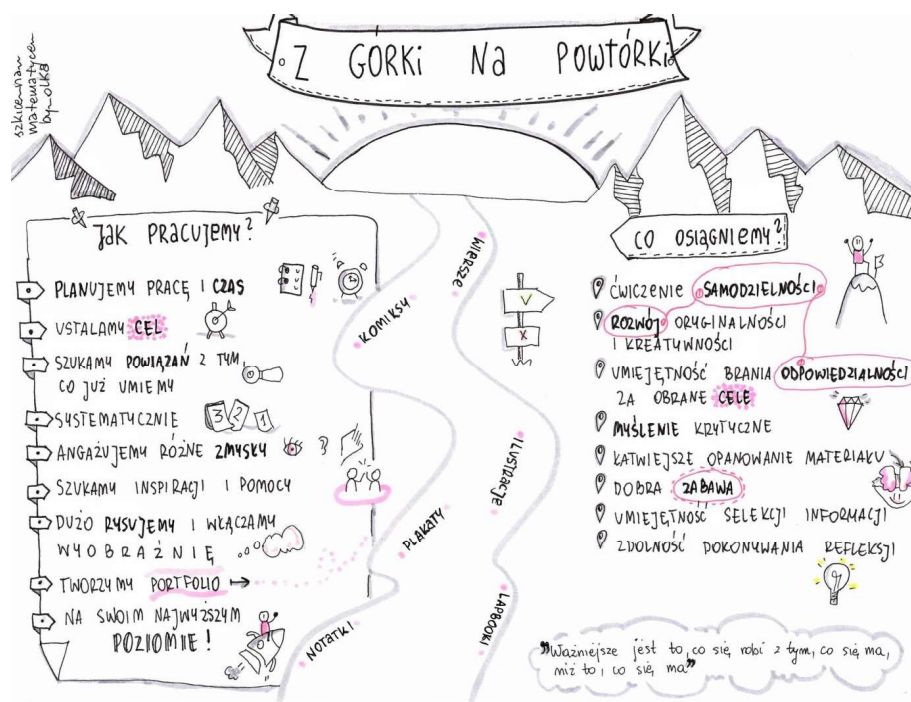 Z GÓRKI NA POWTÓRKI
szkicownam
matematycen
by-olka
JAK PRACUJEMY?
PLANUJEMY PRACĘ I CZAS
USTALAMY CEL
SZUKAMY POWIĄZAŃ Z TYM,
CO JUŻ UMIEMY
SYSTEMATYCZNIE
3 2 1
ANGAŻUJEMY RÓŻNE ZMYSŁY
SZUKAMY INSPIRACJI I POMOCY
DUŻO RYSUJEMY I WŁĄCZAMY
WYOBRAŹNIĘ
TWORZYMY PORTFOLIO
NA SWOIM NAJWYŻSZYM
POZIOMIE!
WIERSZE
KOMIKSY
ILUSTRACJE
PLAKATY
LAPBOOKI
NOTATKI
CO OSIĄGNIEMY?
ĆWICZENIE SAMODZIELNOŚCI
ROZWÓJ ORYGINALNOŚCI
I KREATYWNOŚCI
UMIEJĘTNOŚĆ BRANIA ODPOWIEDZIALNOŚCI
ZA OBRANE CELE
MYŚLENIE KRYTYCZNE
ŁATWIEJSZE OPANOWANIE MATERIAŁU
DOBRA ZABAWA
UMIEJĘTNOŚĆ SELEKCJI INFORMACJI
ZDOLNOŚĆ DOKONYWANIA REFLEKSJI
"Ważniejsze jest to, co się robi z tym, co się ma,
niż to, co się ma"